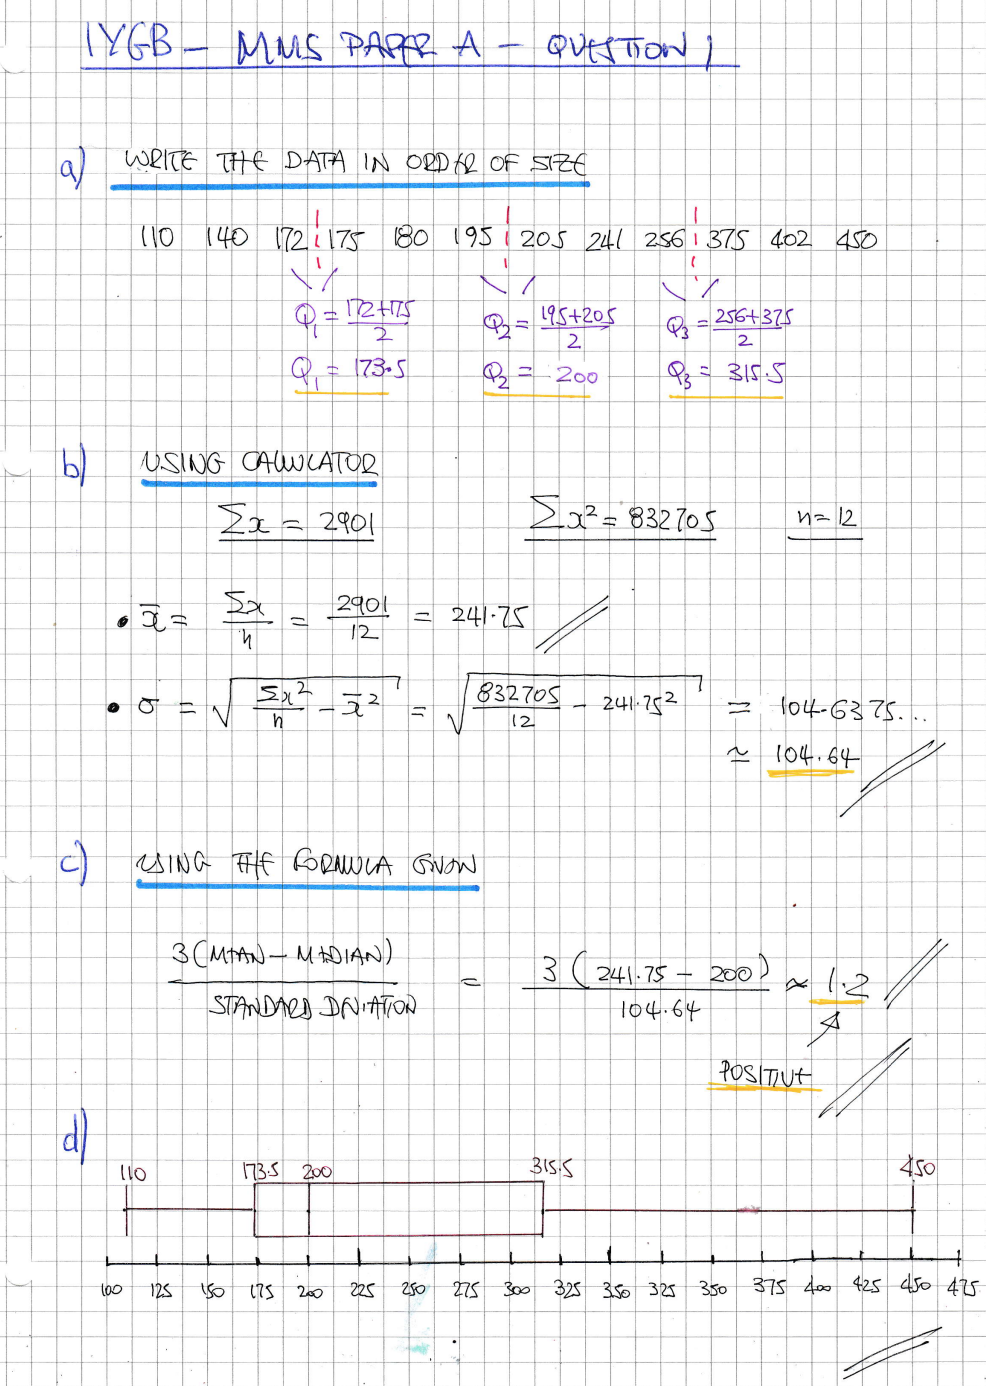 IYGB - MMS PAPER A - QUESTION 1
a) WRITE THE DATA IN ORDER OF SIZE
110 140 172 175 180 195 205 241 256 375 402 450
Q₁ = (172+175)/2 Q₂ = (195+205)/2 Q₃ = (256+375)/2
Q₁ = 173.5 Q₂ = 200 Q₃ = 315.5
b) USING CALCULATOR
Σx = 2901 Σx² = 832705 n = 12
• x̄ = Σx/n = 2901/12 = 241.75
• σ = √(Σx²/n - x̄²) = √(832705/12 - 241.75²) = 104.6375...
≃ 104.64
c) USING THE FORMULA GIVEN
3(MEAN - MEDIAN)/STANDARD DEVIATION = 3(241.75 - 200)/104.64 ≈ 1.2
POSITIVE
d)
110 173.5 200 315.5 450
100 125 150 175 200 225 250 275 300 325 350 325 350 375 400 425 450 475